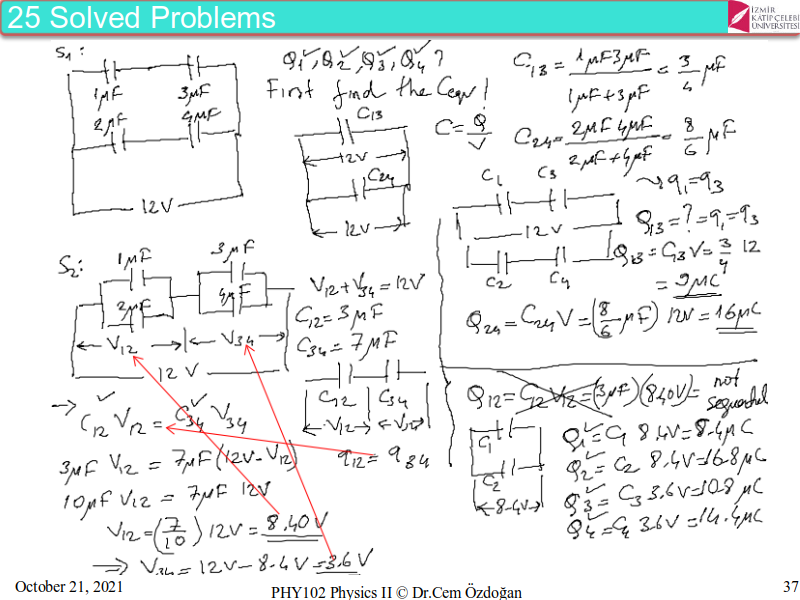 25 Solved Problems
İZMİR
KATİP ÇELEBİ
ÜNİVERSİTESİ
S1:
1μF 3μF
2μF 4μF
12V
Q1, Q2, Q3, Q4 ?
First find the Cequ!
C13
12V
C24
12V
C = Q/V
C13 = 1μF 3μF / 1μF + 3μF = 3/4 μF
C24 = 2μF 4μF / 2μF + 4μF = 8/6 μF
C1 C3
→ q1 = q3
12V
C2 C4
Q13 = ? = q1 = q3
Q13 = C13 V = 3/4 12
= 9μC
Q24 = C24 V = (8/6 μF) 12V = 16μC
S2:
1μF 3μF
2μF 4μF
V12 V34
12V
V12 + V34 = 12V
C12 = 3μF
C34 = 7μF
C12 C34
V12 V34
→ C12 V12 = C34 V34
q12 = q34
3μF V12 = 7μF (12V - V12)
10μF V12 = 7μF 12V
V12 = (7/10) 12V = 8.40V
⇒ V34 = 12V - 8.4V = 3.6V
Q12 = C12 V12 = (3μF)(8.40V) = not
C1
C2
8.4V
Q1 = C1 8.4V = 8.4μC
Q2 = C2 8.4V = 16.8μC
Q3 = C3 3.6V = 10.8μC
Q4 = C4 3.6V = 14.4μC
October 21, 2021
PHY102 Physics II © Dr.Cem Özdoğan
37